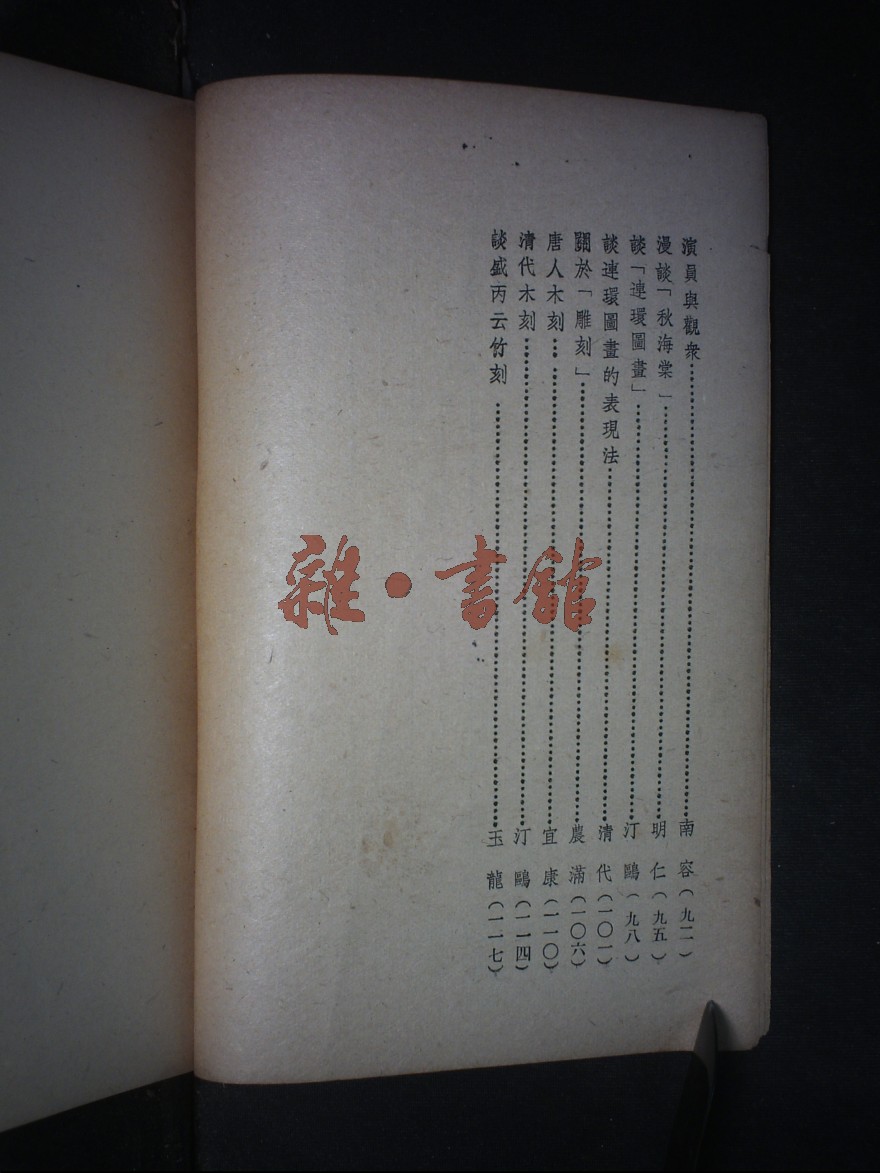 演員與觀衆……南容(九二)
漫談「秋海棠」……明仁(九五)
談「連環圖畫」……汀鷗(九八)
談連環圖畫的表現法……清代(一〇一)
關於「雕刻」……農滿(一〇六)
唐人木刻……宜康(一一〇)
清代木刻……汀鷗(一一四)
談盛丙云竹刻……玉龍(一一七)
雜·書館